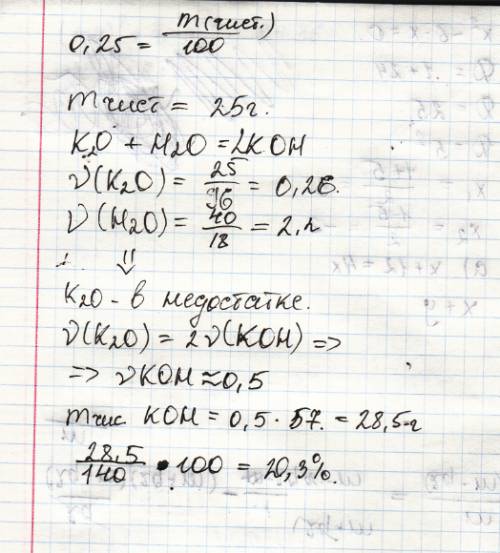 0,25 = m(чист.)/100
m чист = 25г.
K2O + H2O = 2KOH
ν(K2O) = 25/96 = 0,26.
ν(H2O) = 40/18 = 2,2
⇓
K2O - в недостатке.
ν(K2O) = 2ν(KOH) =>
=> νKOH ≈ 0,5
m чис. KOH = 0,5 · 57. = 28,5г
28,5/140 · 100 = 20,3%.